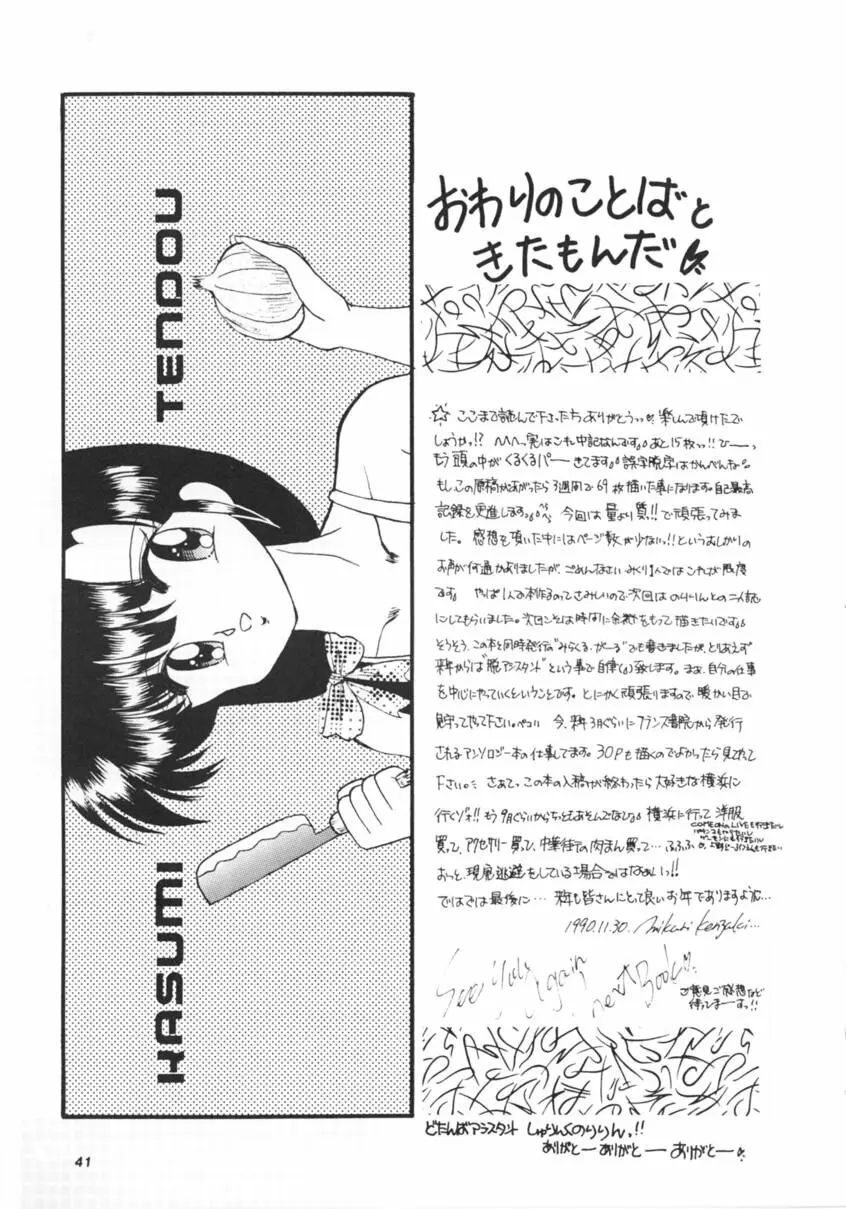 KASUMI TENDOU
おわりのことばと
きたもんだ
☆ ここまで読んで下さったちありがとうっ 楽しんで頂けたで
しょうやっ!? へへへっ実はこれ中記なんです。あと15枚っ!!ひーーっ
もう頭の中がくるくるパーーきてます。誤字脱字はかんべんね。
もしこの原稿があがったら3週間で69枚描いた事になります。自己最高
記録を更進しますっ。今回は量より質!!で頑張ってみま
した。感想を頂いた中にはページ数が少ないっ!!というおしかりの
お声が何通かありましたが、ごめんなさいみくり1人ではこれが限度
です。 やっぱ1人で本作るのってさみしいので次回はのりりんとの二人誌
にしてもらいました。次回こそは時間に余裕をもって描きたいです。
そうそう、この本と同時発行の"みらくる・がーる"でも書きましたが、とりあえず
来年からは"脱アシスタント"という事で自律(?)致します。まあ、自分の仕事
を中心にやっていくということです。とにかく頑張りますので、暖かい目で
見守ってやって下さい。ペコ!! 今、来年3月ぐらいにフランス書院から発行
されるアンソロジー本の仕事してます。30Pも描くのでよかったら見てやって
下さい。 さあてっ、この本の入稿が終わったら大好きな横浜に
行くゾォ!! もう9月ぐらいからちっともあそんでないし。横浜に行って洋服
COMECONA LIVEも行きたいし
買って、アクセサリー買って、中華街での肉まん買って…ふふふ
おっと、現実逃避をしている場合ではなぁいっ!!
でわさは最後に… 来年も皆さんにとって良いお年でありますよぉに…
1990.11.30. Mikuri Kenzaki…
See You Again next Book
ご意見ご感想など
待ってまーすっ!!
どたんばアシスタント しゅりんくのりりんっ!!
ありがとーありがとーーありがとー。
41